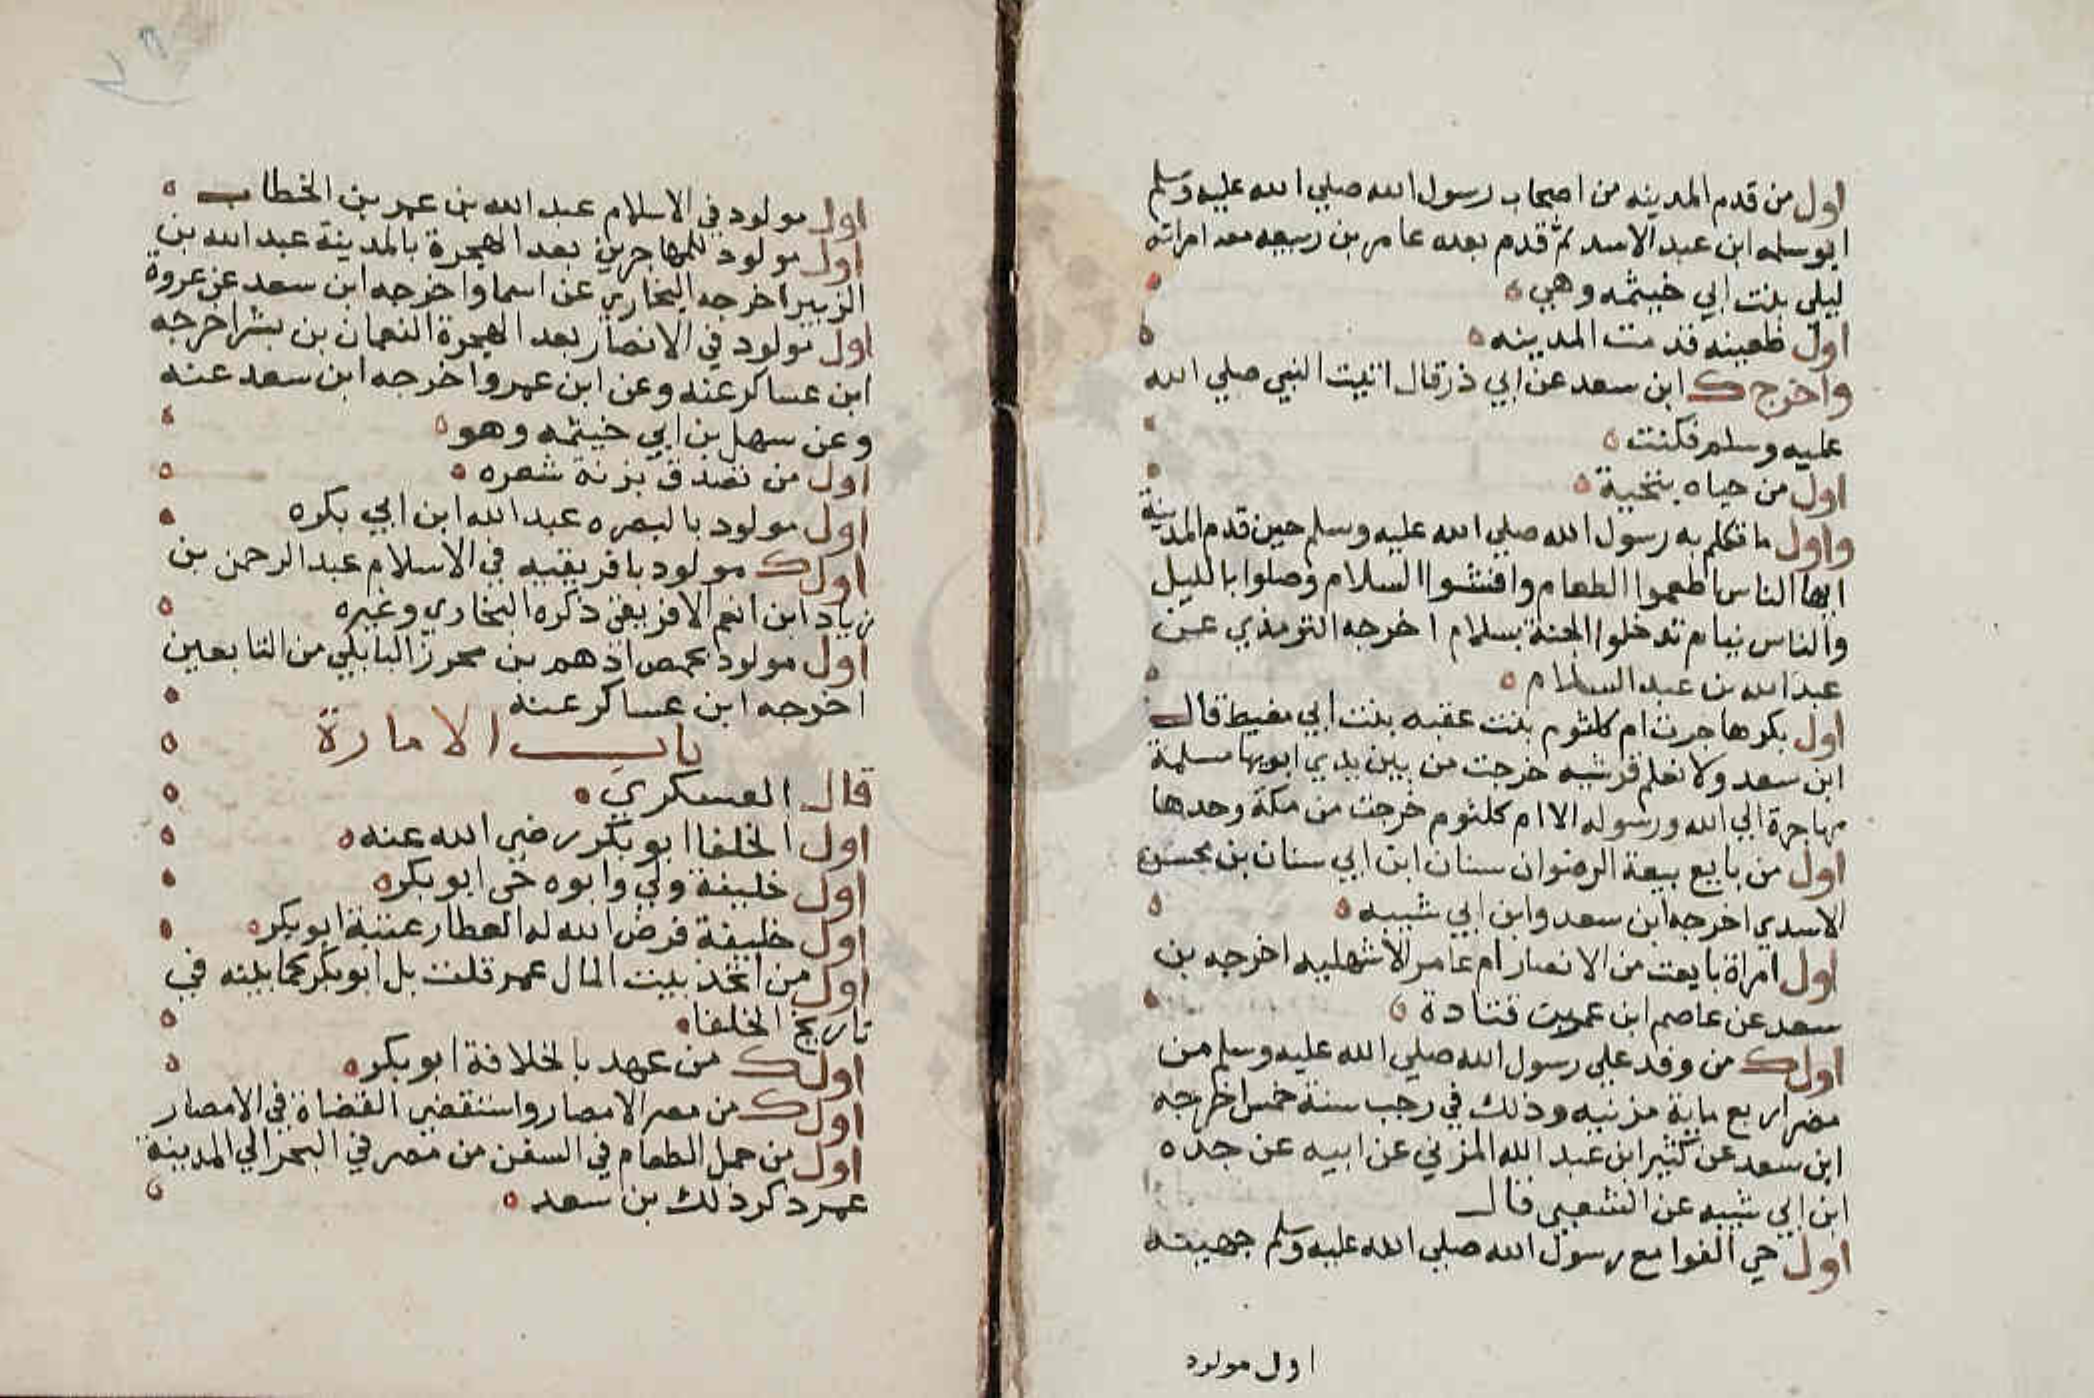 اول من قدم المدينه من اصحاب رسول الله صلي الله عليه وسلم
ابو سلمه ابن عبد الاسد ثم قدم بعده عامر بن ربيعه معه امراته
ليلي بنت ابي خيثمه وهي
اول ظعينه قدمت المدينه
واخرج ابن سعد عن ابي ذر قال اتيت النبي صلي الله
عليه وسلم فكنت
اول من حياه بتحية
واول ما تكلم به رسول الله صلي الله عليه وسلم حين قدم المدينة
ايها الناس اطعموا الطعام وافشوا السلام وصلوا بالليل
والناس نيام تدخلوا الجنة بسلام اخرجه الترمذي عن
عبد الله بن عبد السلام
اول بكر هاجرت ام كلثوم بنت عقبه بنت ابي معيط قال
ابن سعد ولا نعلم قرشيه خرجت من بين يدي ابويها مسلمة
مهاجرة الي الله ورسوله الا ام كلثوم خرجت من مكة وحدها
اول من بايع بيعة الرضوان سنان ابن ابي سنان بن محسن
الاسدي اخرجه ابن سعد وابن ابي شيبه
اول امراة بايعت من الانصار ام عامر الاشهليه اخرجه بن
سعد عن عاصم ابن عمر بن قتادة
اول من وفد علي رسول الله صلي الله عليه وسلم من
مضر اربع ماية مزنيه وذلك في رجب سنة خمس اخرجه
ابن سعد عن كثير ابن عبد الله المزني عن ابيه عن جده
ابن ابي شيبه عن الشعبي قال
اول حي الفوا مع رسول الله صلي الله عليه وسلم جهينه
اول مولود
اول مولود في الاسلام عبد الله بن عمر بن الخطاب
اول مولود للمهاجرين بعد الهجرة بالمدينة عبد الله بن
الزبير اخرجه البخاري عن اسما واخرجه ابن سعد عن عروة
اول مولود في الانصار بعد الهجرة النعمان بن بشر اخرجه
ابن عساكر عنه وعن ابن عمر واخرجه ابن سعد عنه
وعن سهل بن ابي خيثمه وهو
اول من تصدق بزنة شعره
اول مولود بالبصره عبد الله ابن ابي بكره
اول مولود بافريقيه في الاسلام عبد الرحمن بن
زياد ابن انعم الافريقي ذكره البخاري وغيره
اول مولود بحمص ادهم بن محرز البابلي من التابعين
اخرجه ابن عساكر عنه
باب الامارة
قال العسكري
اول الخلفا ابو بكر رضي الله عنه
اول خليفة ولي وابوه حي ابو بكر
اول خليفة فرض الله له العطار عتبة ابو بكر
اول من اتخذ بيت المال عمر قلت بل ابو بكر كما بينه في
تاريخ الخلفا
اول من عهد بالخلافة ابو بكر
اول من مصر الامصار واستقضي القضاة في الامصار
اول من حمل الطعام في السفن من مصر في البحر الي المدينة
عمر ذكر ذلك بن سعد